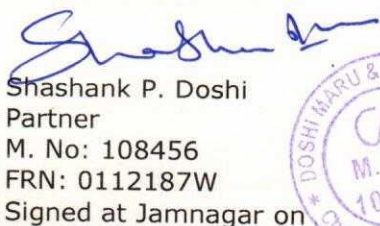 Shashank P. Doshi
Partner
M. No: 108456
FRN: 0112187W
Signed at Jamnagar on
DOSHI MARU &
M.